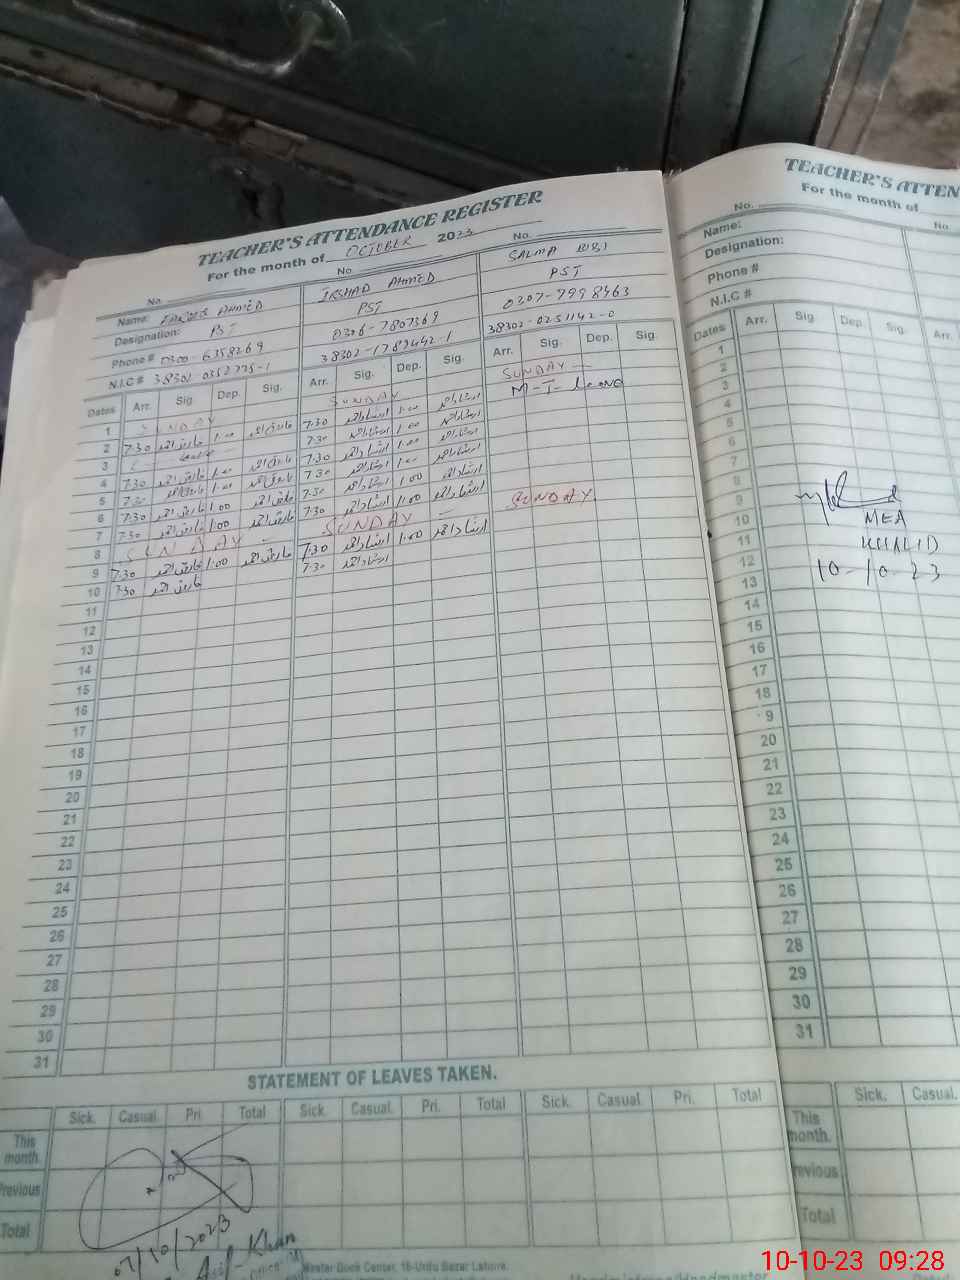 TEACHER'S ATTENDANCE REGISTER
For the month of OCTOBER 2023
No. No. No.
Name: AHMED IRSHAD AHMED SALMA BIBI
Designation: PST PST PST
Phone # 0300-6358269 0306-7807369 0307-7998463
N.I.C # 38302-1782442-1 38302-0251142-0
Dates Arr. Sig. Dep. Sig. Arr. Sig. Dep. Sig. Arr. Sig. Dep. Sig.
1 SUNDAY SUNDAY SUNDAY
2 7:30 1:00 7:30 ارشاد احمر 1:00 ارشاد احمر M-T-leave
3 7:30 ارشاد احمر 1:00 ارشاد احمر
4 7:30 1:00 7:30 ارشاد احمر 1:00 ارشاد احمر
5 7:30 1:00 7:30 ارشاد احمر 1:00
6 7:30 1:00 7:30 ارشاد احمر 1:00 ارشاد احمر
7 7:30 1:00 7:30 ارشاد احمر 1:00 ارشاد احمر
8 SUNDAY SUNDAY SUNDAY
9 7:30 1:00 7:30 ارشاد احمر 1:00 ارشاد احمر
10 7:30 7:30 ارشاد احمر
11
12
13
14
15
16
17
18
19
20
21
22
23
24
25
26
27
28
29
30
31
STATEMENT OF LEAVES TAKEN.
Sick. Casual. Pri. Total Sick. Casual. Pri. Total Sick. Casual Pri. Total
This month.
Previous
Total
07/10/2023
Khan
Book Center, 16-Urdu Bazar Lahore.
TEACHER'S ATTEN
For the month of
No. No
Name:
Designation:
Phone #
N.I.C #
Dates Arr. Sig. Dep. Sig. Arr.
1
2
3
4
5
6
7
8
9
10
11
12
13
14
15
16
17
18
9
20
21
22
23
24
25
26
27
28
29
30
31
MEA
KHALID
10-10-23
Sick. Casual.
This month.
revious
Total
10-10-23 09:28